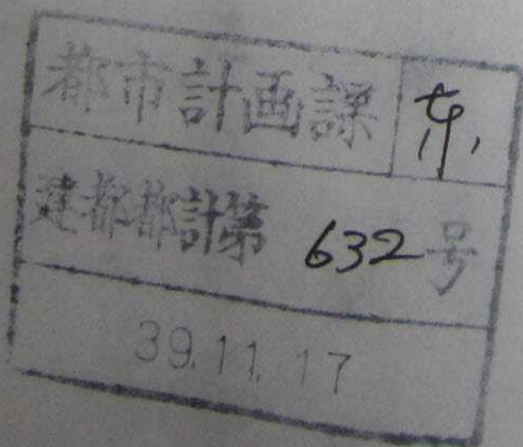 都市計画課
建都都計第 632 号
39.11.17